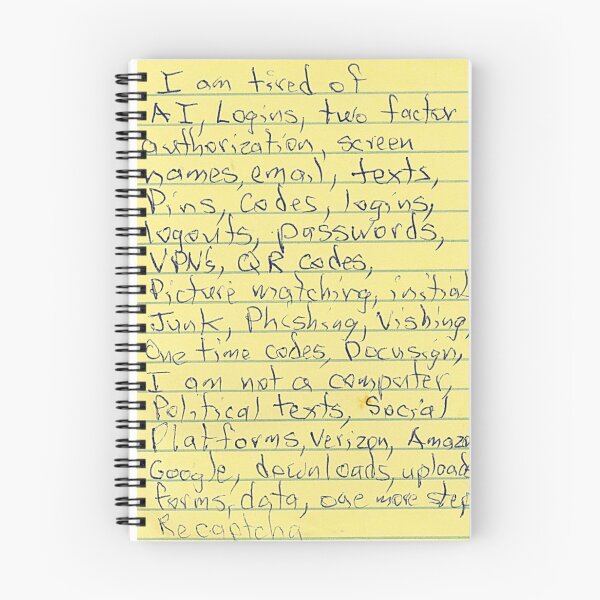 I am tired of
AI, Logins, two factor
authorization, screen
names, email, texts,
Pins, codes, logins,
logouts, passwords,
VPN's, QR codes,
Picture matching, initial
Junk, Phishing, Vishing,
One time codes, Docusign,
I am not a computer,
Political texts, Social
Platforms, Verizon, Amazo
Google, downloads, upload
forms, data, one more step
Recaptcha